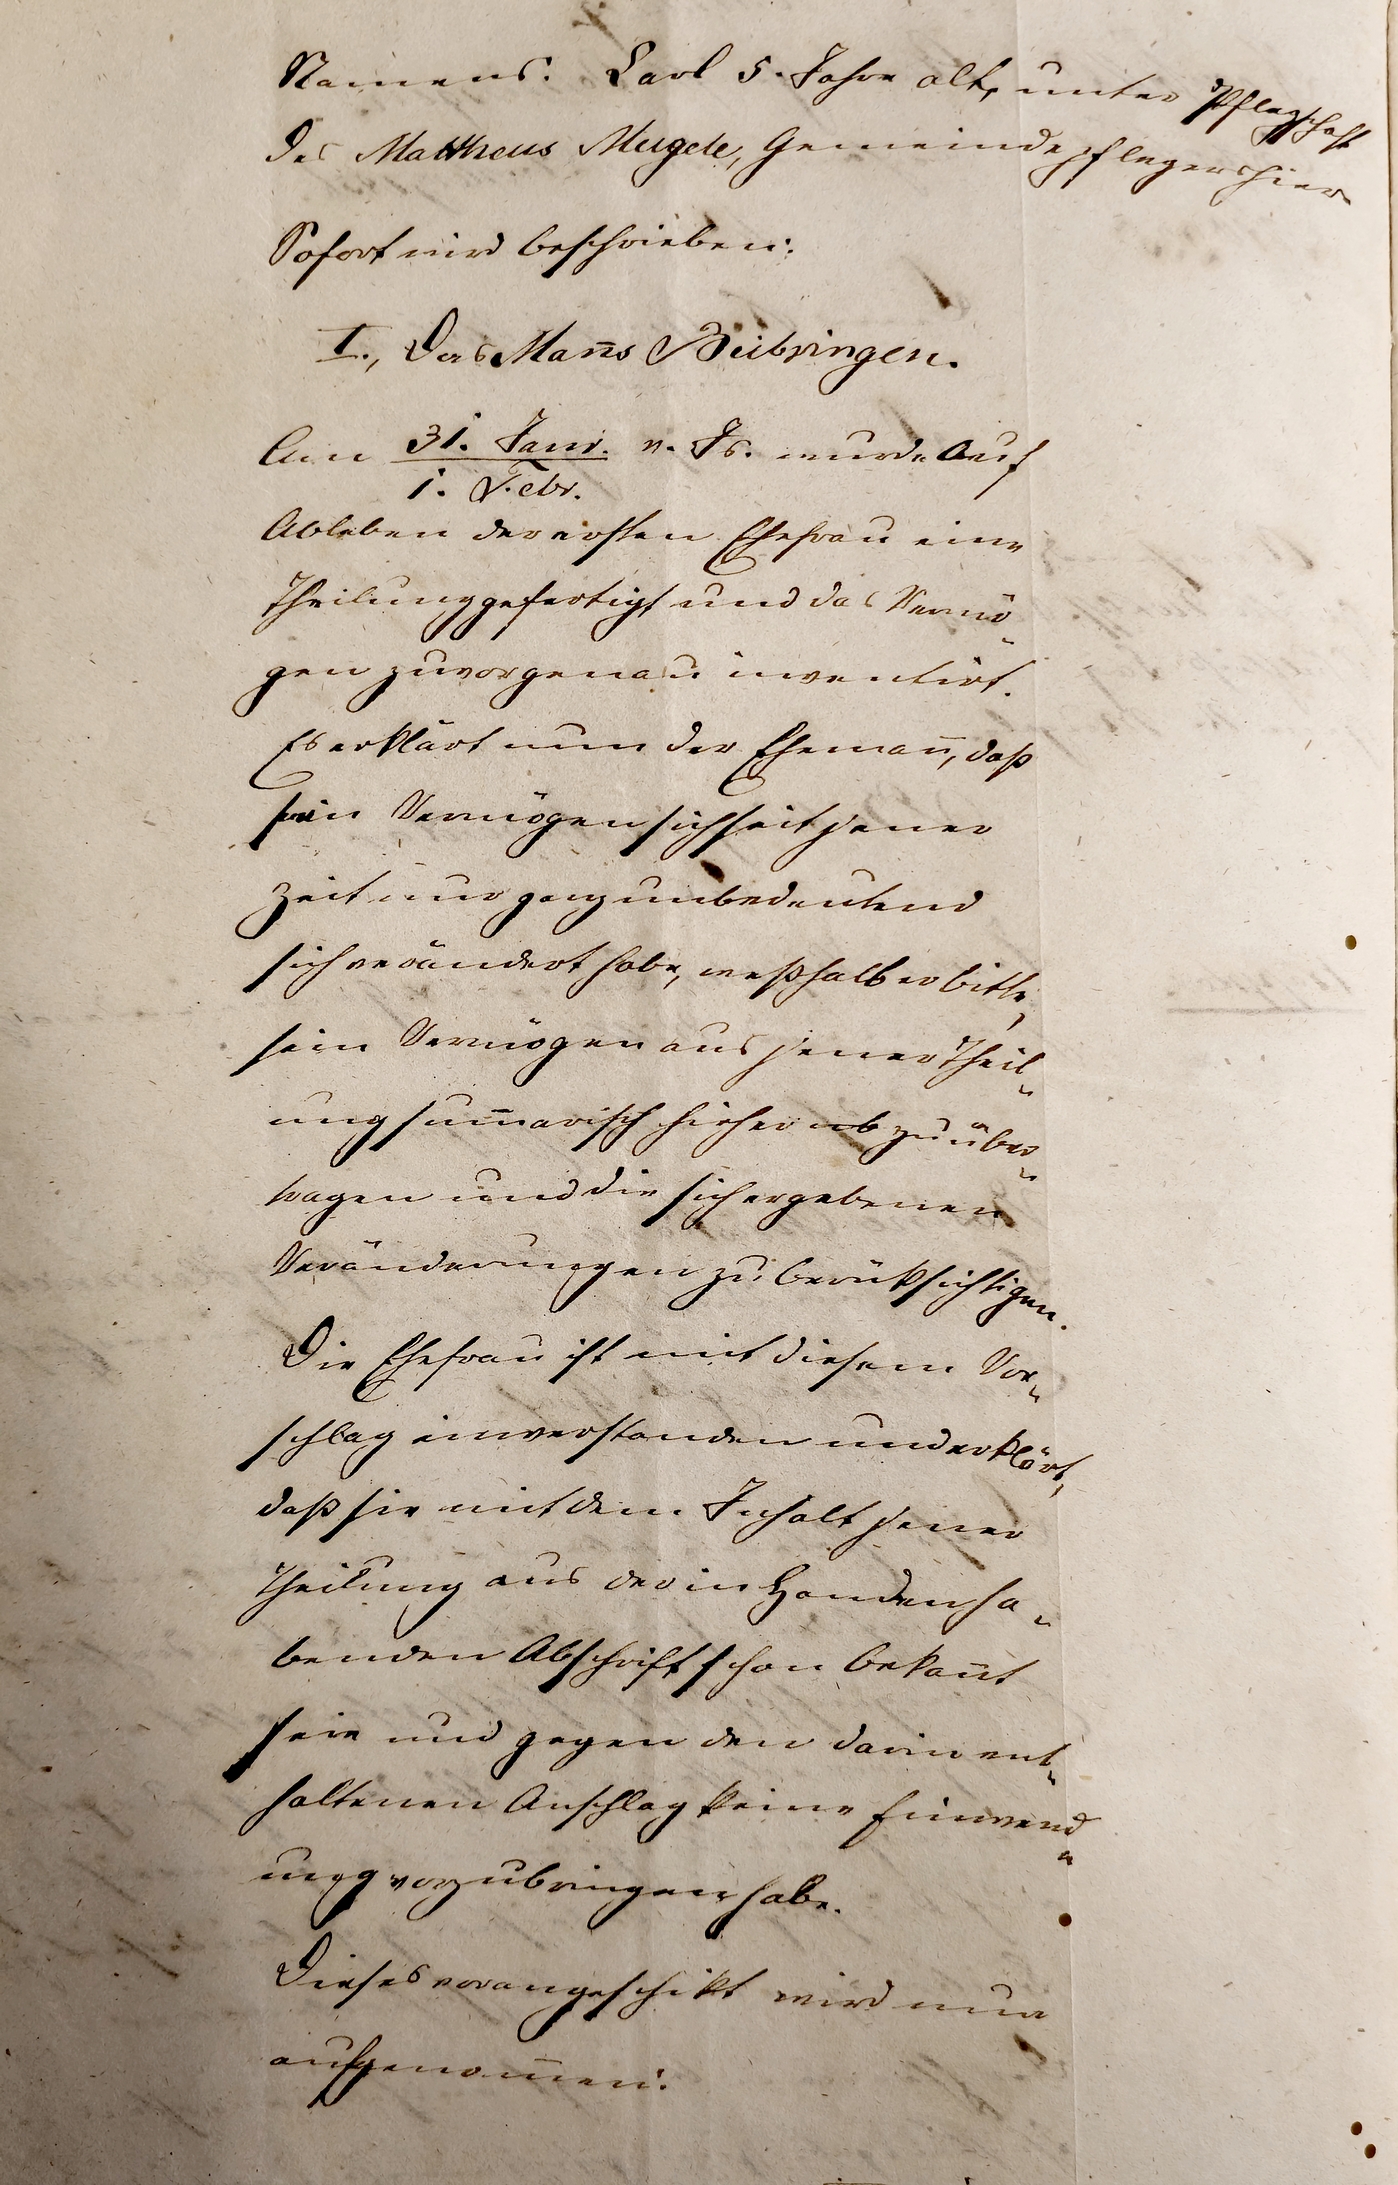 Namens: Carl 5. Jahre alt, unter Pflegschaft
des Mattheus Mugele, Gemeindepflegers hier
Sofort wird beschrieben:
I., Des Mans̄ Beibringen.
Am 31. Janr. v. Js. wurde auf
1. Febr.
Ableben der ersten Ehefrau eine
Theilung gefertigt und das Vermö„
gen zuvor genau inventirt.
Es erklärt nun der Ehemañ, daß
sein Vermögen sich seit jener
Zeit nur ganz unbedeutend
sich verändert habe, weßhalb er bitte,
sein Vermögen aus jener Theil„
ung sum̄arisch hieher zu über„
tragen und die sich ergebenen
Veränderungen zu berüksichtigen.
Die Ehefrau ist mit diesem Vor„
schlag einverstanden und erklärt,
daß sie mit dem Inhalt jener
Theilung aus der in Handen ha„
benden Abschrift schon bekañt
seie und gegen den darin ent„
haltenen Anschlag keine Einwend„
ung vorzubringen habe.
Dieses vorangeschikt wird nun
aufgenom̄en: